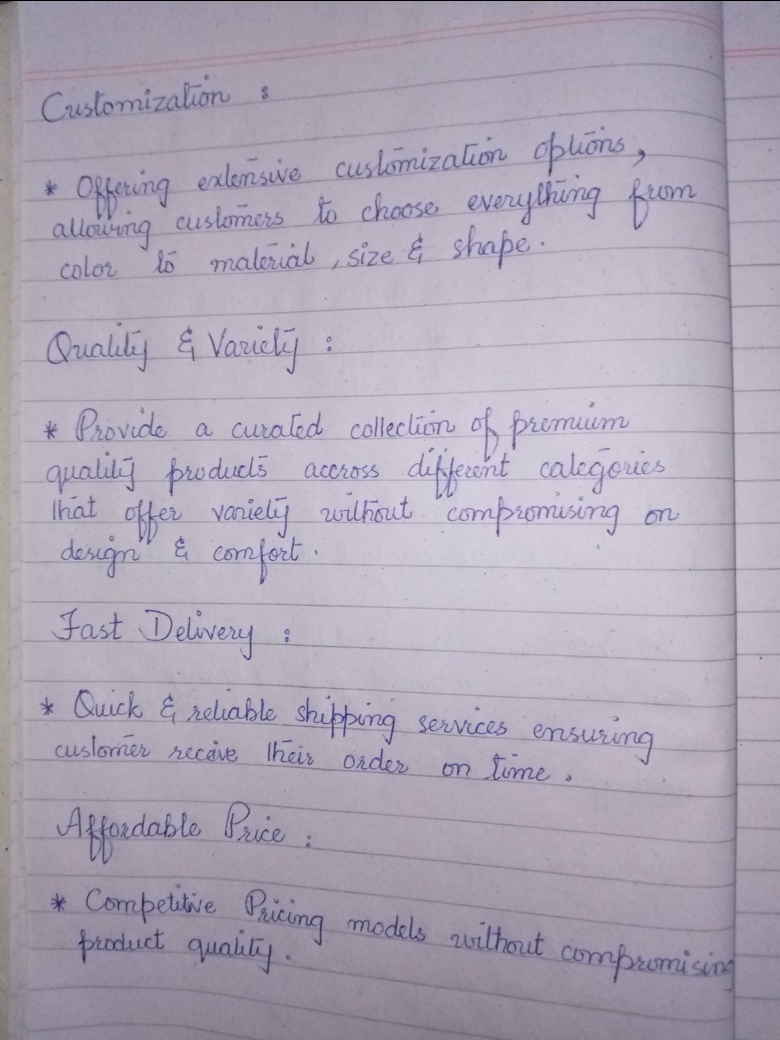 Customization :
* Offering extensive customization options,
allowing customers to choose everything from
color to material, size & shape.
Quality & Variety :
* Provide a curated collection of premium
quality products accross different categories
that offer variety without compromising on
design & comfort.
Fast Delivery :
* Quick & reliable shipping services ensuring
customer receive their order on time.
Affordable Price :
* Competitive Pricing models without compromising
product quality.